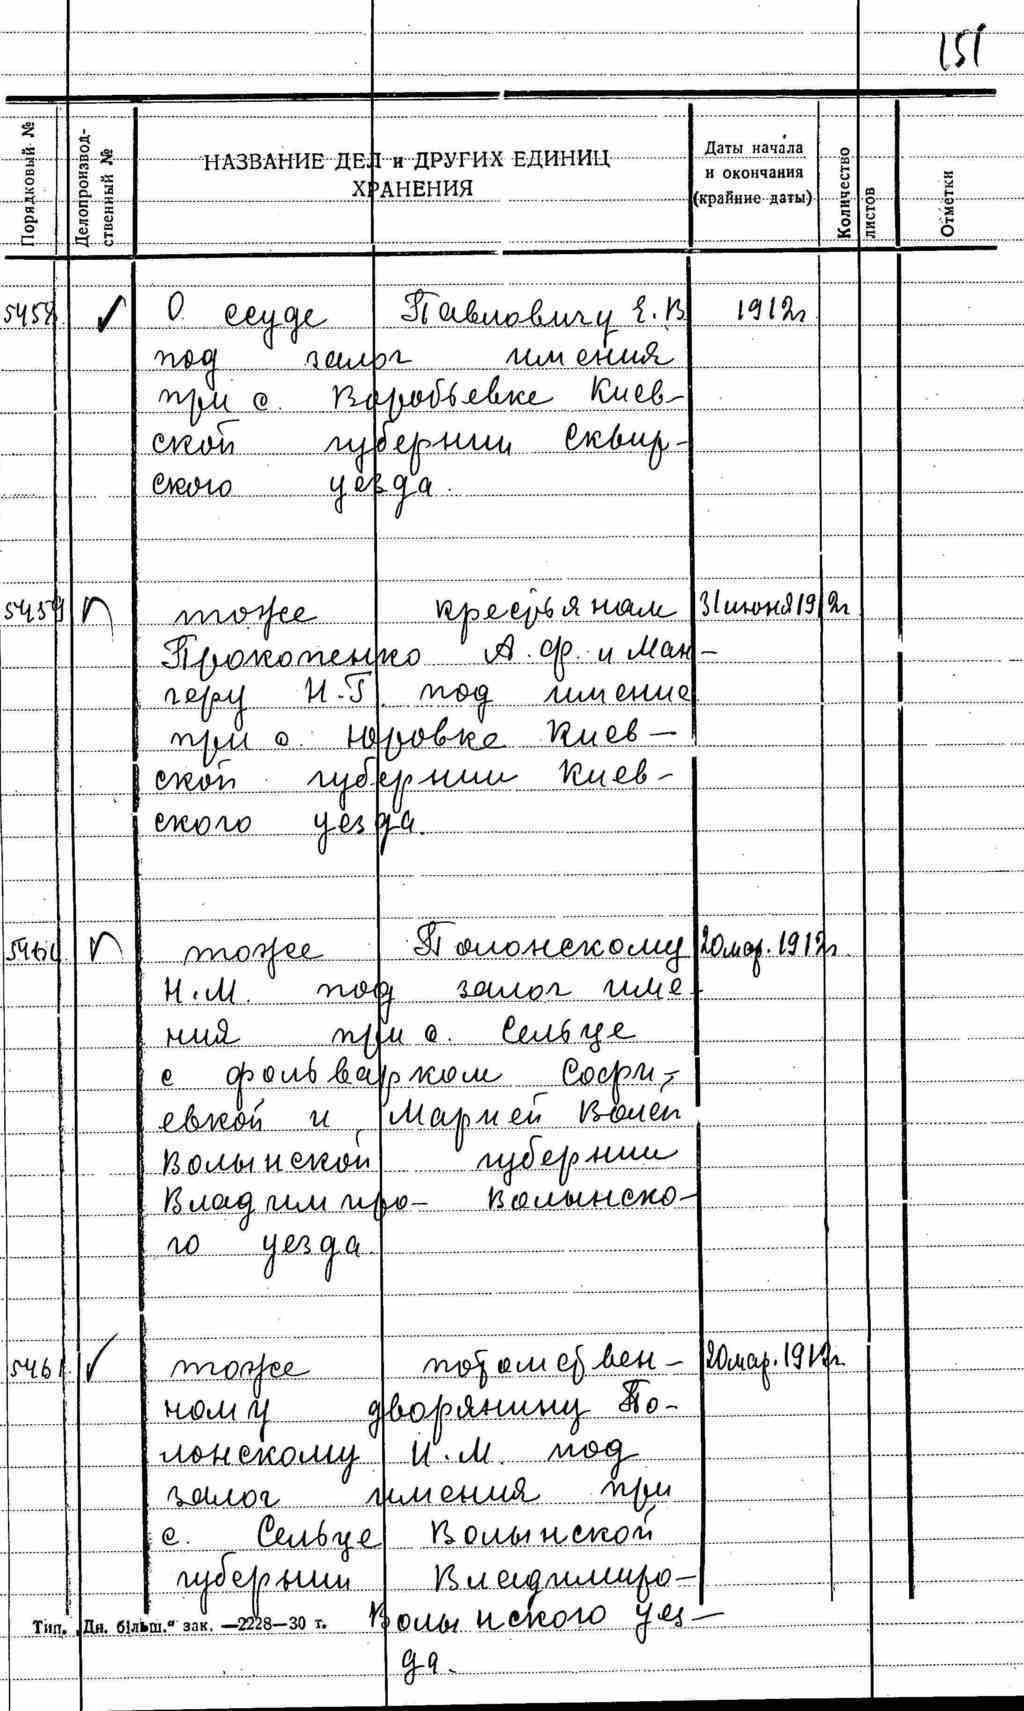 151
Порядковый №
Делопроизвод-
ственный №
НАЗВАНИЕ ДЕЛ и ДРУГИХ ЕДИНИЦ
ХРАНЕНИЯ
Даты начала
и окончания
(крайние даты)
Количество
листов
Отметки
5458 ✓ О ссуде Павловичу Е.В. 1912г.
под залог имения
при с. Воробьевке Киев-
ской губернии Сквир-
ского уезда.
5459 тоже крестьянам 31 июня 1912г.
Прокопенко А.Ф. и Ман-
геру Н.Г. под имение
при с. Юровке Киев-
ской губернии Киев-
ского уезда.
5460 тоже Полонскому 20 мар. 1912г.
Н.М. под залог име-
ния при с. Сельце
с фольварком Софи-
евкой и Марией Волей
Волынской губернии
Владимиро- Волынско-
го уезда.
5461 ✓ тоже потомствен- 20 мар. 1912г.
ному дворянину По-
лонскому И.М. под
залог имения при
с. Сельце Волынской
губернии Владимиро-
Волынского уез-
да.
Тип. „Дн. більш.“ зак. —2228—30 т.